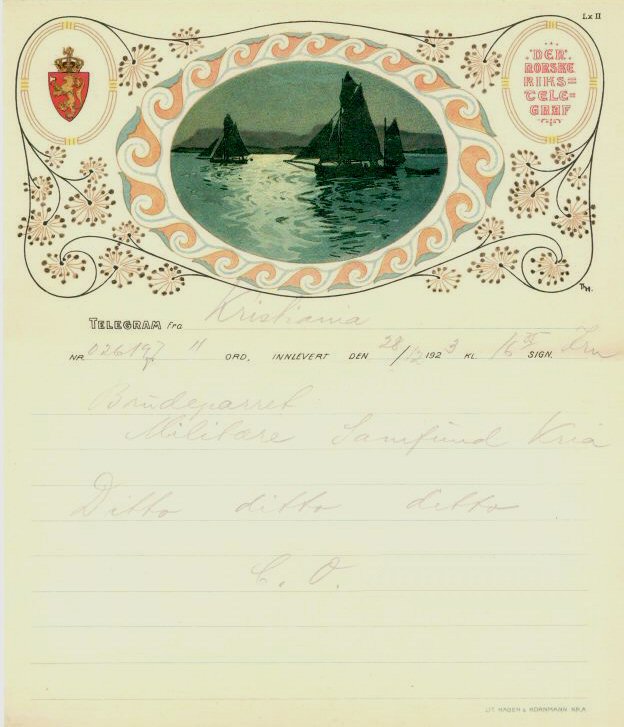 Lx II
DER
NORSKE
RIKS=
TELE=
GRAF
TELEGRAM fra Kristiania
NR. 11 ORD, INNLEVERT DEN 28/12 1923 KL. 16 35 SIGN.
Brudeparret
Militære Samfund Kria
Ditto ditto ditto
C. O.
LIT. HAGEN & KORNMANN KR.A